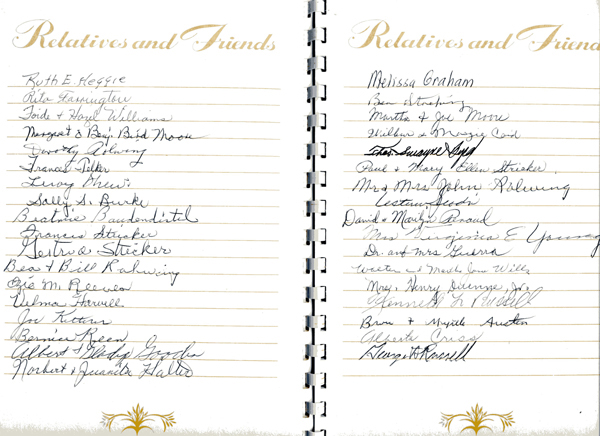 Relatives and Friends
Ruth E. Heggie
Rita Farrington
Hazel Williams
Margaret & Benj. Bird Moore
Dorothy Rolwing
Frances
Leroy
Sally S. Burke
Beatrice Baudendistel
Francis Stricker
Gertrude Stricker
Bea & Bill Rolwing
M. Reeves
Velma Harvill
Joe
Bernice Keen
Albert & Gladys
Norbert & Juanita Halter
Relatives and Friend
Melissa Graham
Ben
Martha & Joe Moore
Wilbur & Margie
Paul & Mary Ellen Stricker
Mr & Mrs John Rolwing
David & Marilyn Renaud
Mrs Virginia E Young
Dr. and Mrs Guerra
& Martha Jean Wills
Mrs. Henry Jr.
Kenneth L Russell
& Myrtle Austin
Alberta
George H Russell